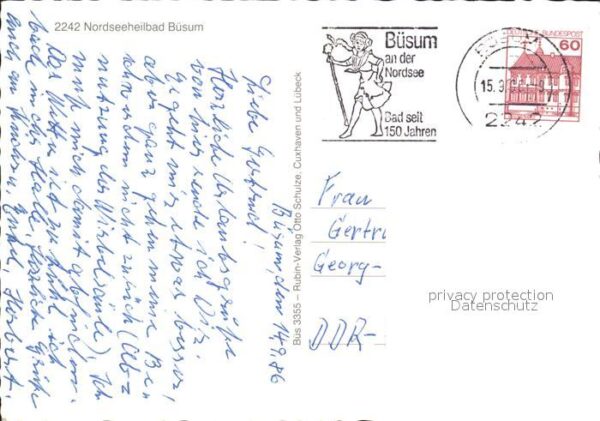 2242 Nordseeheilbad Büsum
Büsum
an der
Nordsee
Bad seit
150 Jahren
DEUTSCHE BUNDESPOST
60
BÜSUM
15.9.
2242
Büsum, den 14.9.86
Liebe Gertrud!
Herzliche Urlaubsgrüße
von hier sende ich Dir.
Es geht mir etwas besser,
aber ganz gehen meine Be
schwerden nicht zurück (Ab
nutzung der Wirbelsäule). Ich
muß mich damit abfinden.
Das Wetter ist zu kühl
auch
Kindern
Herbert.
Bus 3355 – Rubin-Verlag Otto Schulze, Cuxhaven und Lübeck
Frau
Gertru
Georg-
DDR-
privacy protection
Datenschutz